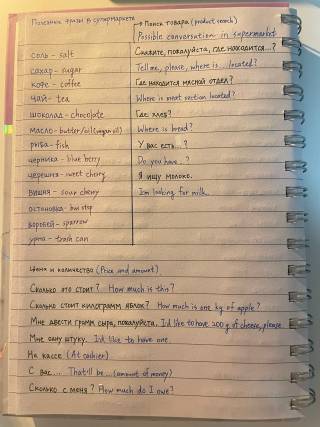 Полезные фразы в супермаркете
→ Поиск товара (product search)
Possible conversation in supermarket
соль - salt
Скажите, пожалуйста, где находится...?
сахар - sugar
Tell me, please, where is... located?
кофе - coffee
Где находится мясной отдел?
чай - tea
Where is meat section located?
шоколад - chocolate
Где хлеб?
масло - butter/oil
Where is bread?
рыба - fish
У вас есть...?
черника - blue berry
Do you have...?
черешня - sweet cherry
Я ищу молоко.
вишня - sour cherry
I'm looking for milk.
остановка - bus stop
воробей - sparrow
урна - trash can
Цена и количество (Price and amount)
Сколько это стоит? How much is this?
Сколько стоит килограмм яблок? How much is one kg of apple?
Мне двести грамм сыра, пожалуйста. I'd like to have 200 g of cheese, please.
Мне одну штуку. I'd like to have one.
На кассе (At cashier)
С вас... That'll be... (amount of money)
Сколько с меня? How much do I owe?